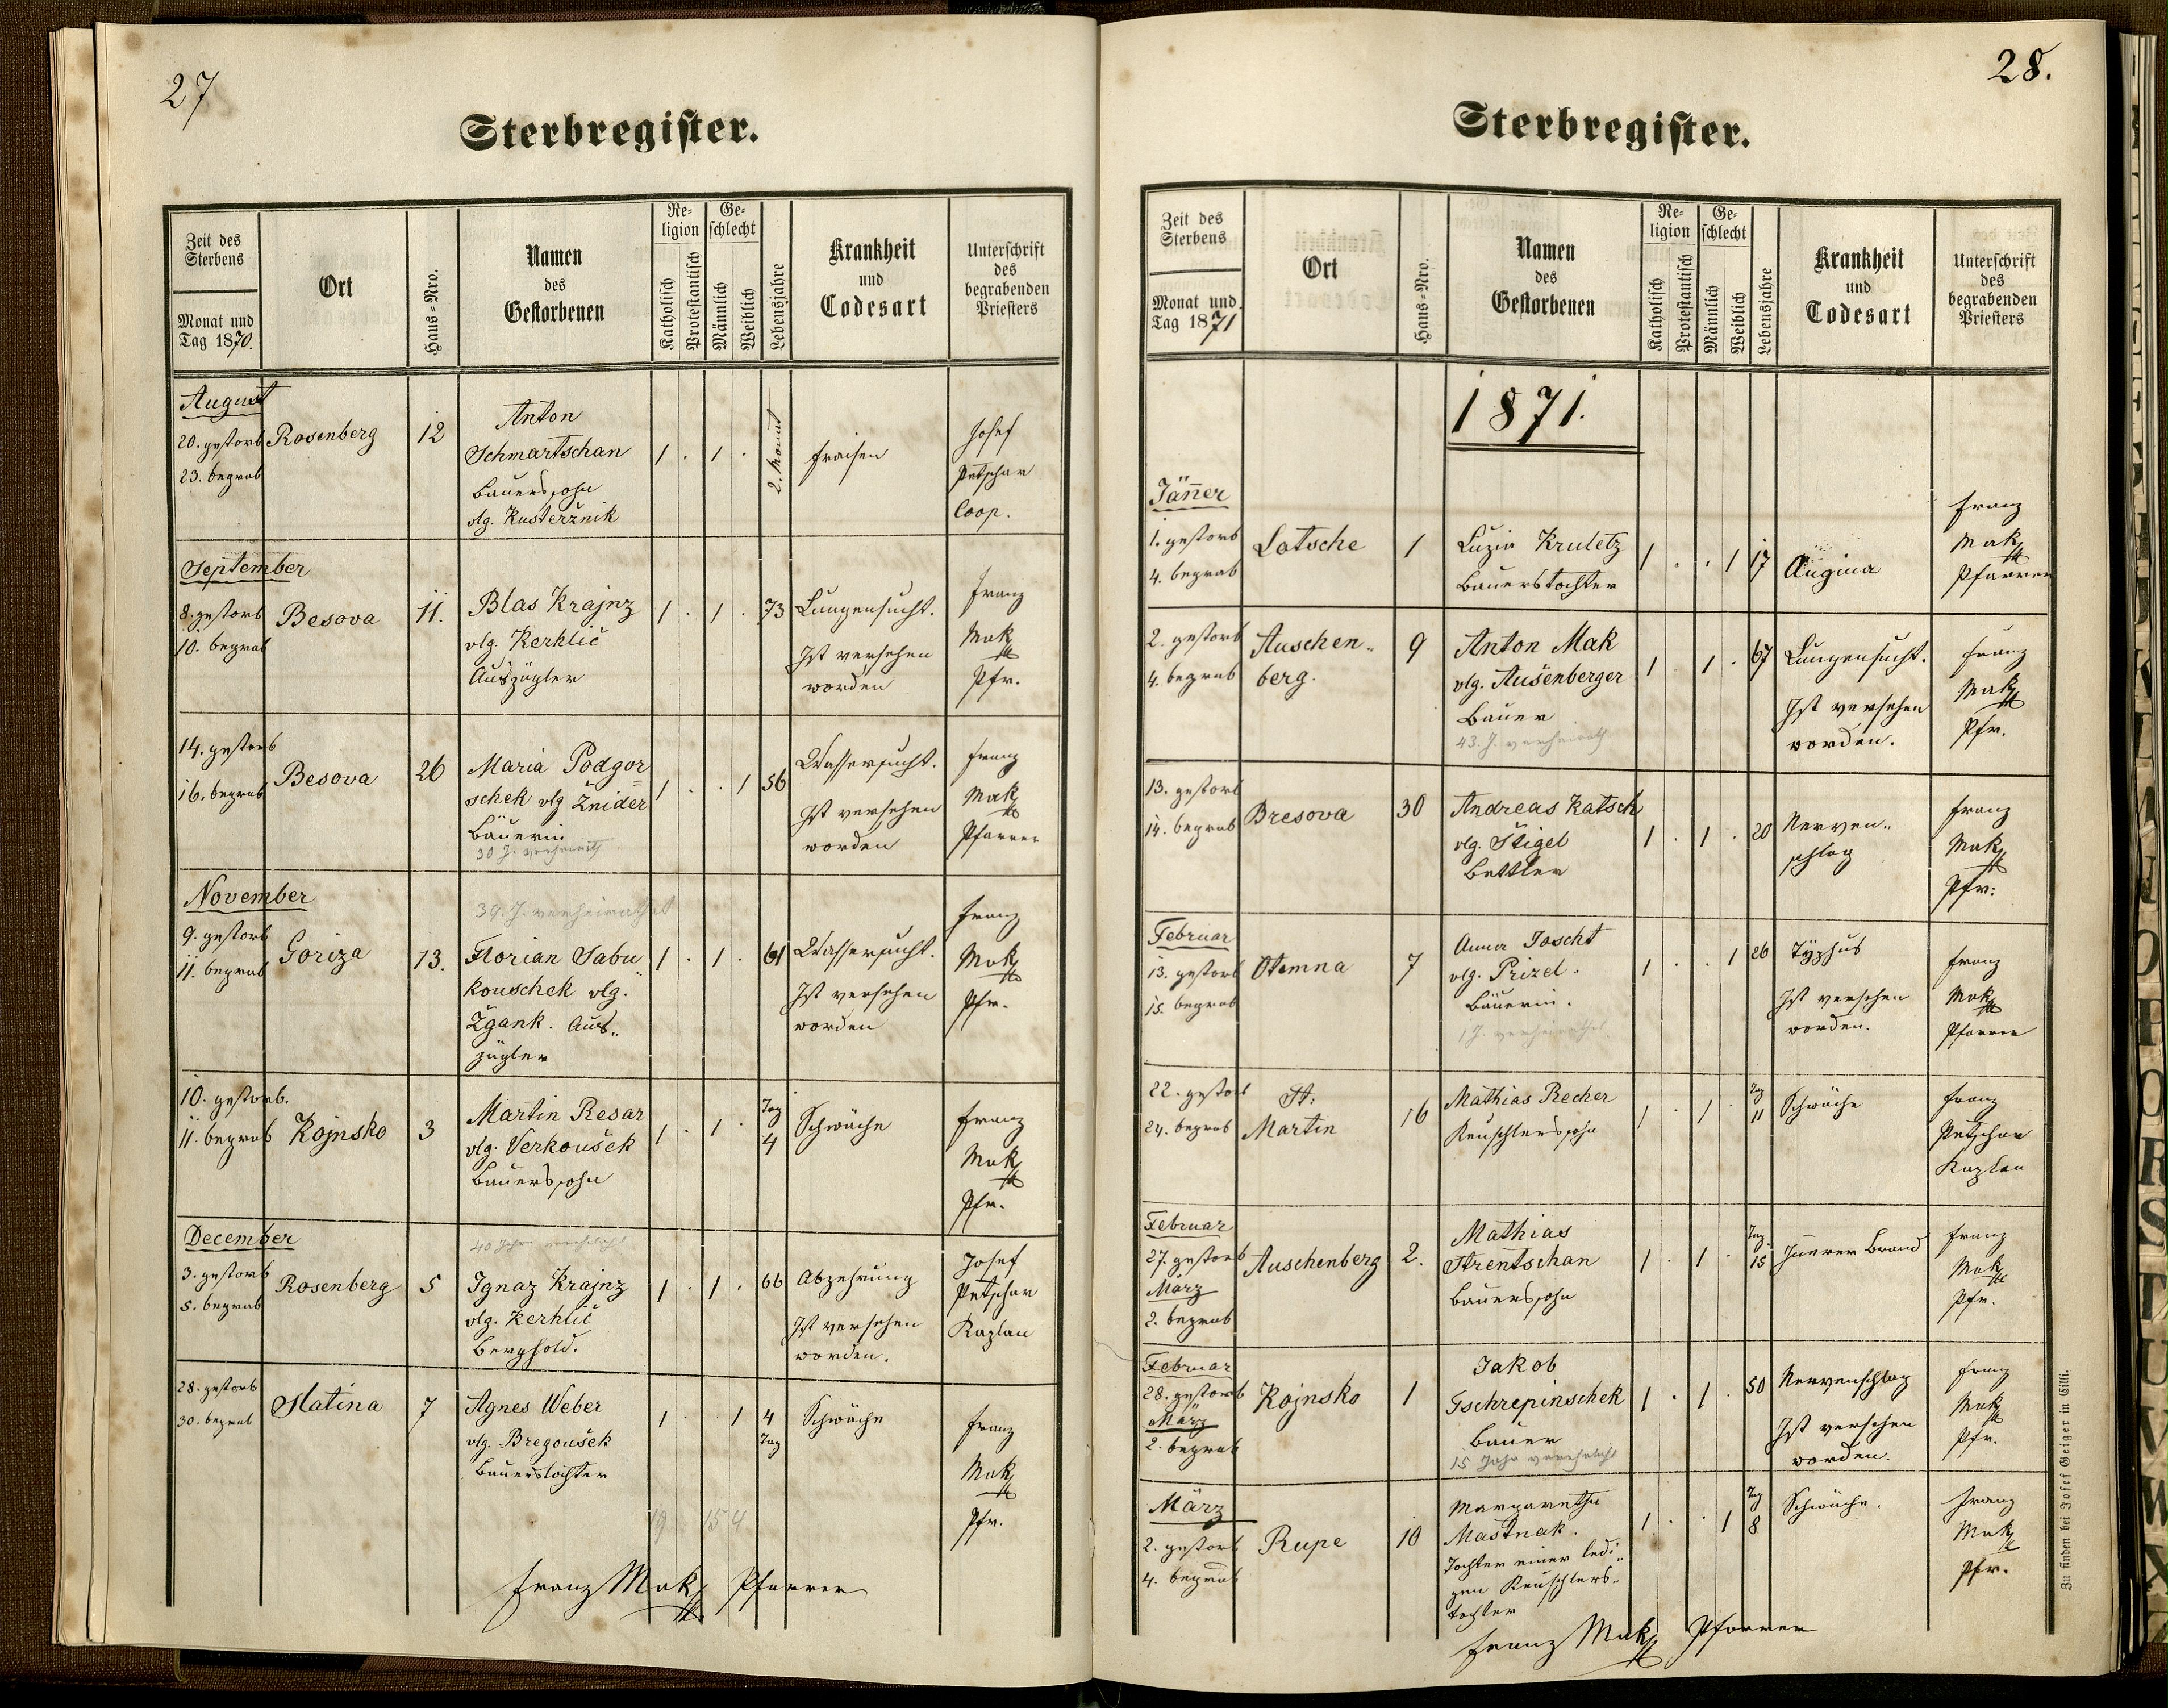 27
Sterbregister.
Zeit des
Sterbens
Monat und
Tag 1870.
Ort
Haus-Nro.
Namen
des
Gestorbenen
Re-
ligion
Katholisch
Protestantisch
Ge-
schlecht
Männlich
Weiblich
Lebensjahre
Krankheit
und
Todesart
Unterschrift
des
begrabenden
Priesters
August
20. gestorb
23. begrab
Rosenberg
12
Anton
Schmartschan
Bauerssohn
vlg. Kusteržnik
1 . 1 .
2. Monat
Fraisen
Josef
Petschar
Coop.
September
8. gestorb
10. begrab
Besova
11.
Blas Krajnz
vlg. Kerklič
Auszügler
1 . 1 .
73
Lungensucht.
Ist versehen
worden
Franz
Mak
Pfr.
14. gestorb
16. begrab
Besova
26
Maria Podgor=
schek vlg Žnider
Bäuerin
30 J. verheirath
1 . . 1
56
Wassersucht.
Ist versehen
worden
Franz
Mak
Pfarrer
November
9. gestorb
11. begrab
Goriza
13.
39. J. verheirathet
Florian Sabu„
kouschek vlg.
Žgank. Aus„
zügler
1 . 1 .
61
Wassersucht.
Ist versehen
worden
Franz
Mak
Pfr.
10. gestorb.
11. begrab
Kojnsko
3
Martin Resar
vlg. Verkoušek
Bauerssohn
1 . 1 .
Tag
4
Schwäche
Franz
Mak
Pfr.
December
3. gestorb
5. begrab
Rosenberg
5
40 Jahre verehlicht
Ignaz Krajnz
vlg. Kerhlič
Berghold.
1 . 1 .
66
Abzehrung
Ist versehen
worden.
Josef
Petschar
Kaplan
28. gestorb
30. begrab
Slatina
7
Agnes Weber
vlg. Bregoušek
Bauerstochter
1 . . 1
4
Tag
Schwäche
Franz
Mak
Pfr.
19 15 4
Franz Mak Pfarrer
28.
Sterbregister.
Zeit des
Sterbens
Monat und
Tag 1871
Ort
Haus-Nro.
Namen
des
Gestorbenen
Re-
ligion
Katholisch
Protestantisch
Ge-
schlecht
Männlich
Weiblich
Lebensjahre
Krankheit
und
Todesart
Unterschrift
des
begrabenden
Priesters
1871.
Jänner
1. gestorb
4. begrab
Latsche
1
Luzia Kruletz
Bauerstochter
1 . . 1
17
Angina
Franz
Mak
Pfarrer
2. gestorb
4. begrab
Auschen„
berg.
9
Anton Mak
vlg. Aušenberger
Bauer
43. J. verheirath
1 . 1 .
67
Lungensucht.
Ist versehen
worden.
Franz
Mak
Pfr.
13. gestorb
14. begrab
Bresova
30
Andreas Katsch
vlg. Stigel
Bettler
1 . 1 .
20
Nerven„
schlag
Franz
Mak
Pfr:
Februar
13. gestorb
15. begrab
Otemna
7
Anna Joscht
vlg. Prizel.
Bäuerin.
1 J. verheirathet.
1 . . 1
26
Typhus
Ist versehen
worden.
Franz
Mak
Pfarrer
22. gestorb
24. begrab
St.
Martin
16
Mathias Recher
Keuschlerssohn
1 . 1 .
Tag
11
Schwäche
Franz
Petschar
Kaplan
Februar
27. gestorb
März
2. begrab
Auschenberg
2.
Mathias
Strentschan
Bauerssohn
1 . 1 .
Tag.
15
Innerer Brand
Franz
Mak
Pfr.
Februar
28. gestorb
März
2. begrab
Kojnsko
1
Jakob
Tschrepinschek
Bauer
15 Jahr verehelicht
1 . 1 .
50
Nervenschlag
Ist versehen
worden.
Franz
Mak
Pfr.
März
2. gestorb
4. begrab
Rupe
10
Margaretha
Mastnak.
Tochter einer ledi„
gen Keuschlers„
tochter
1 . . 1
Tag
8
Schwäche.
Franz
Mak
Pfr.
Franz Mak Pfarrer
Zu finden bei Josef Geiger in Cilli.